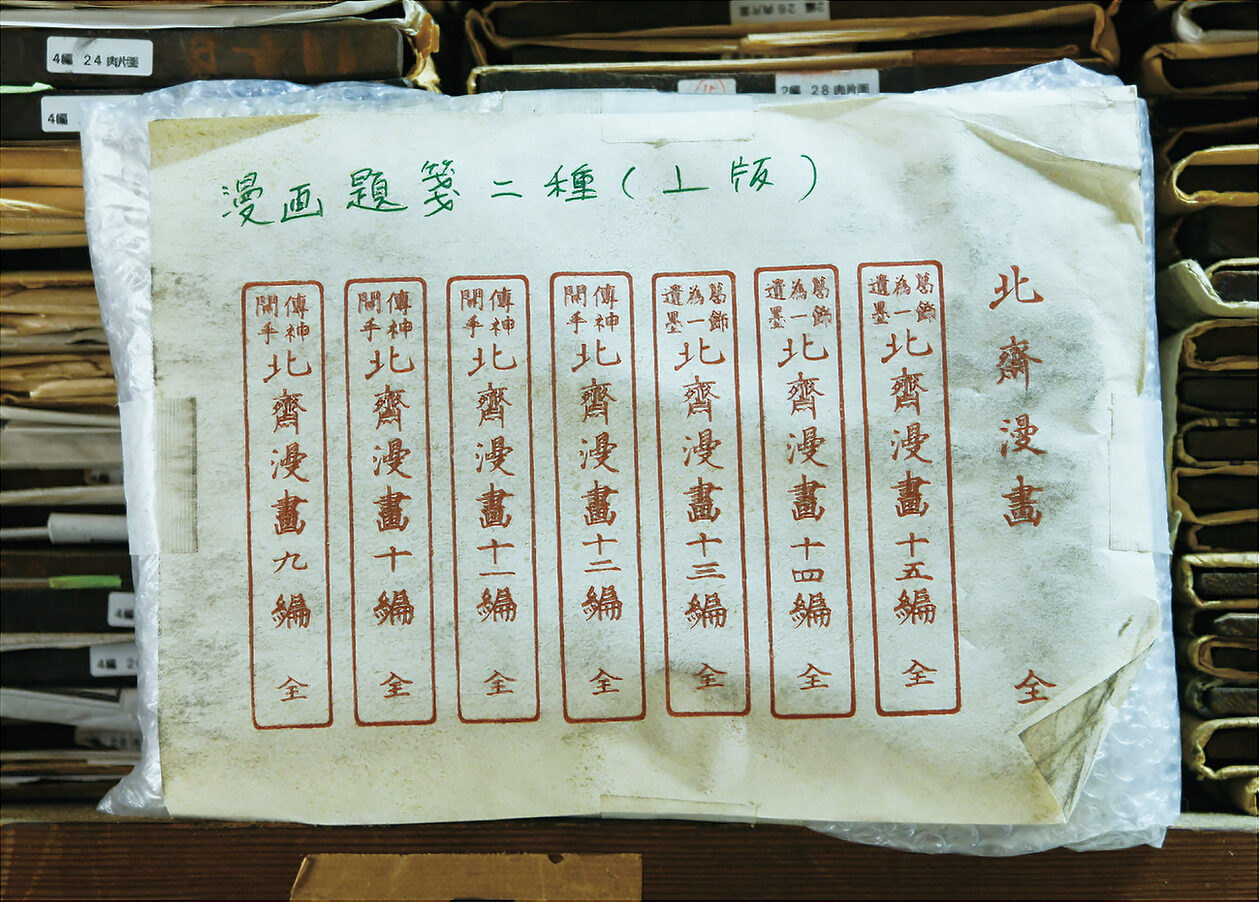 4編 24 肉片面
2編 28 肉片面
4編
漫画題箋二種(上版)
北齋漫畫 全
葛飾為一遺墨 北齋漫畫十五編 全
葛飾為一遺墨 北齋漫畫十四編 全
葛飾為一遺墨 北齋漫畫十三編 全
傳神開手 北齋漫畫十二編 全
傳神開手 北齋漫畫十一編 全
傳神開手 北齋漫畫十編 全
傳神開手 北齋漫畫九編 全
4編